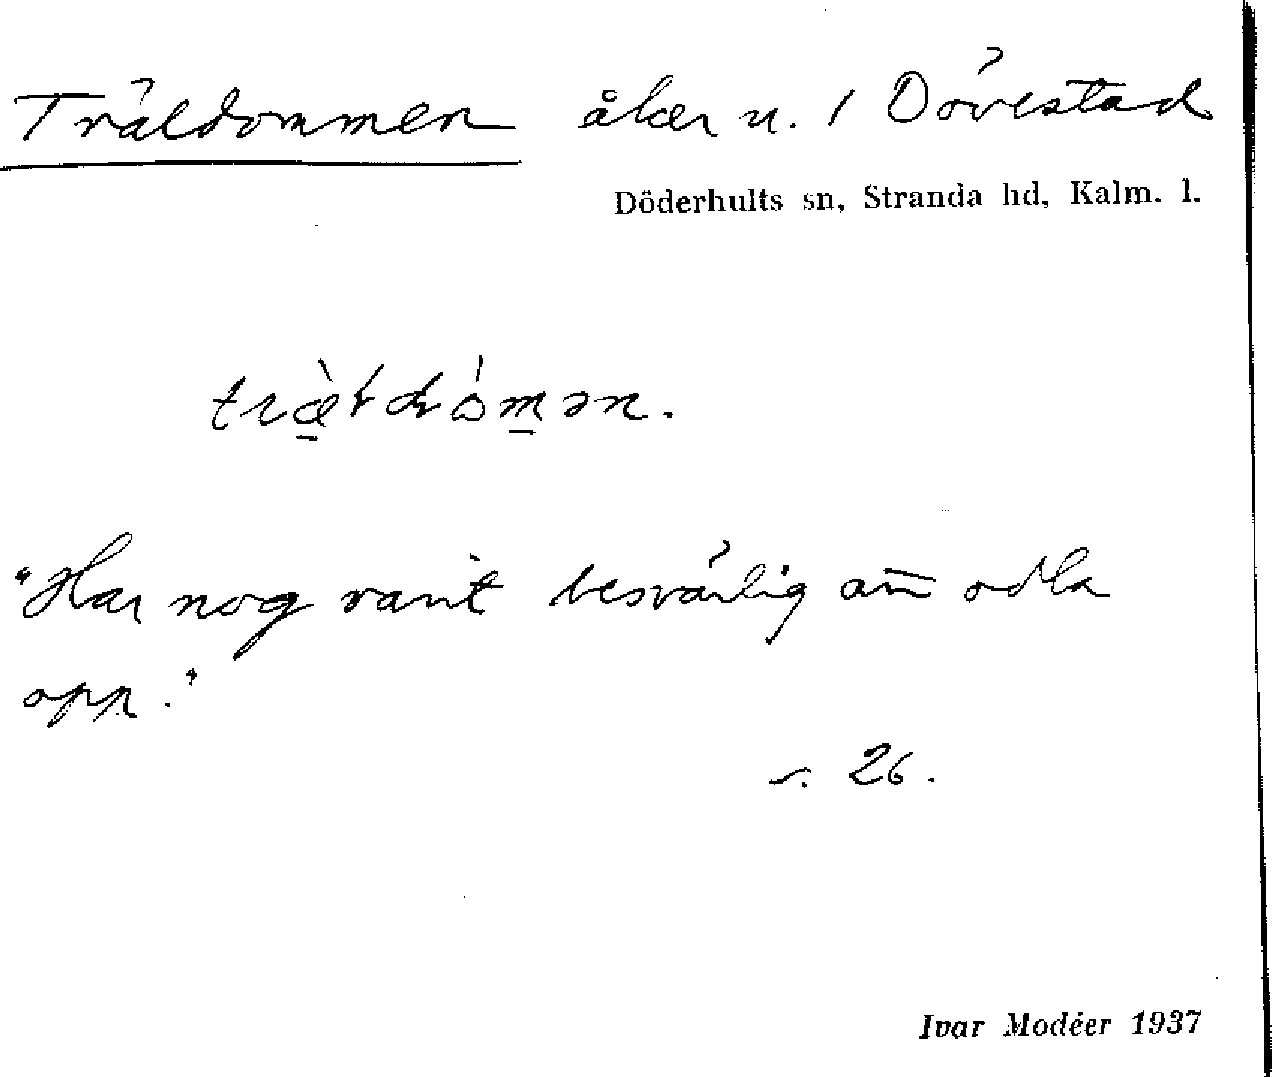 Träldommen åker u. 1 Dövestad
Döderhults sn, Stranda hd, Kalm. l.
"Har nog varit besvärlig att odla
opp."
s. 26.
Ivar Modéer 1937